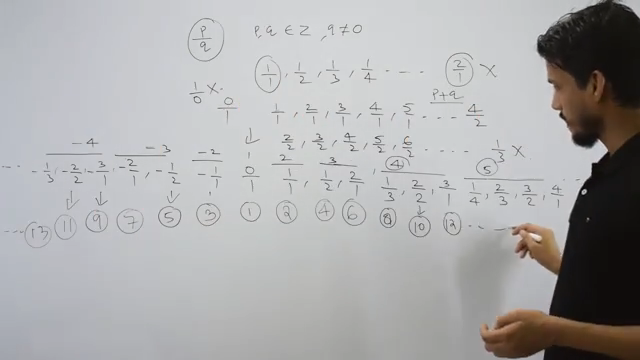 p/q p,q ∈ Z , q≠0
1/1, 1/2, 1/3, 1/4 ---- 2/1 X
1/0 X. 0/1
p+q
1/1, 2/1, 3/1, 4/1, 5/1 ---- 4/2
2/2, 3/2, 4/2, 5/2, 6/2 ---- 1/3 X
-4 -3 -2 2 3 4 5
-- -1/3, -2/2, -3/1, -2/1, -1/2, -1/1, 0/1, 1/1, 1/2, 2/1, 1/3, 2/2, 3/1, 1/4, 2/3, 3/2, 4/1 --
--- 13 11 9 7 5 3 1 2 4 6 8 10 12 -- --